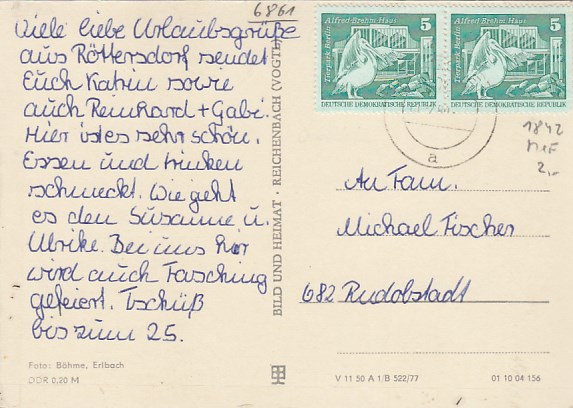 6861
Viele liebe Urlaubsgrüße
aus Röttersdorf sendet
Euch Katrin sowie
auch Reinhard + Gabi.
Hier ist es sehr schön.
Essen und trinken
schmeckt. Wie geht
es den Susanne u.
Ulrike. Bei uns hier
wird auch Fasching
gefeiert. Tschüß
bis zum 25.
Foto: Böhme, Erlbach
DDR 0,20 M
BILD UND HEIMAT · REICHENBACH (VOGTL)
Alfred-Brehm-Haus 5
Tierpark Berlin
DEUTSCHE DEMOKRATISCHE REPUBLIK
Alfred-Brehm-Haus 5
Tierpark Berlin
DEUTSCHE DEMOKRATISCHE REPUBLIK
a
1842
MeF
2,-
An Fam.
Michael Fischer
682 Rudolstadt
V 11 50 A 1/B 522/77
01 10 04 156